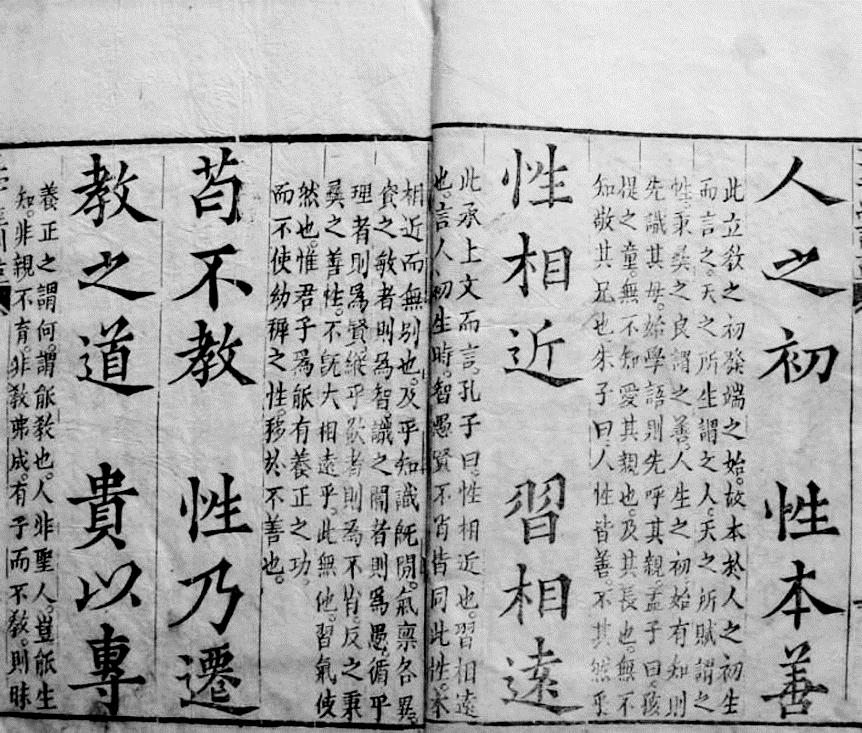 人之初 性本善
此立敎之初發端之始故本於人之初生
而言之天之所生謂之人天之所賦謂之
性秉彝之良謂之善人生之初始有知則
先識其母始學語則先呼其親孟子曰孩
提之童無不知愛其親也及其長也無不
知敬其兄也朱子曰人性皆善不其然乎
性相近 習相遠
此承上文而言孔子曰性相近也習相遠
也言人初生時智愚賢不肖皆同此性本
相近而無别也及乎知識既開氣稟各異
資之敏者則為智識之闇者則為愚循乎
理者則爲賢縱乎欲者則為不肖反之秉
彝之善性不旣大相遠乎此無他習氣使
然也惟君子爲能有養正之功
而不使幼穉之性移於不善也
苟不教 性乃遷
教之道 貴以專
養正之謂何謂能敎也人非聖人豈能生
知非親不育非敎弗成有子而不敎則昧